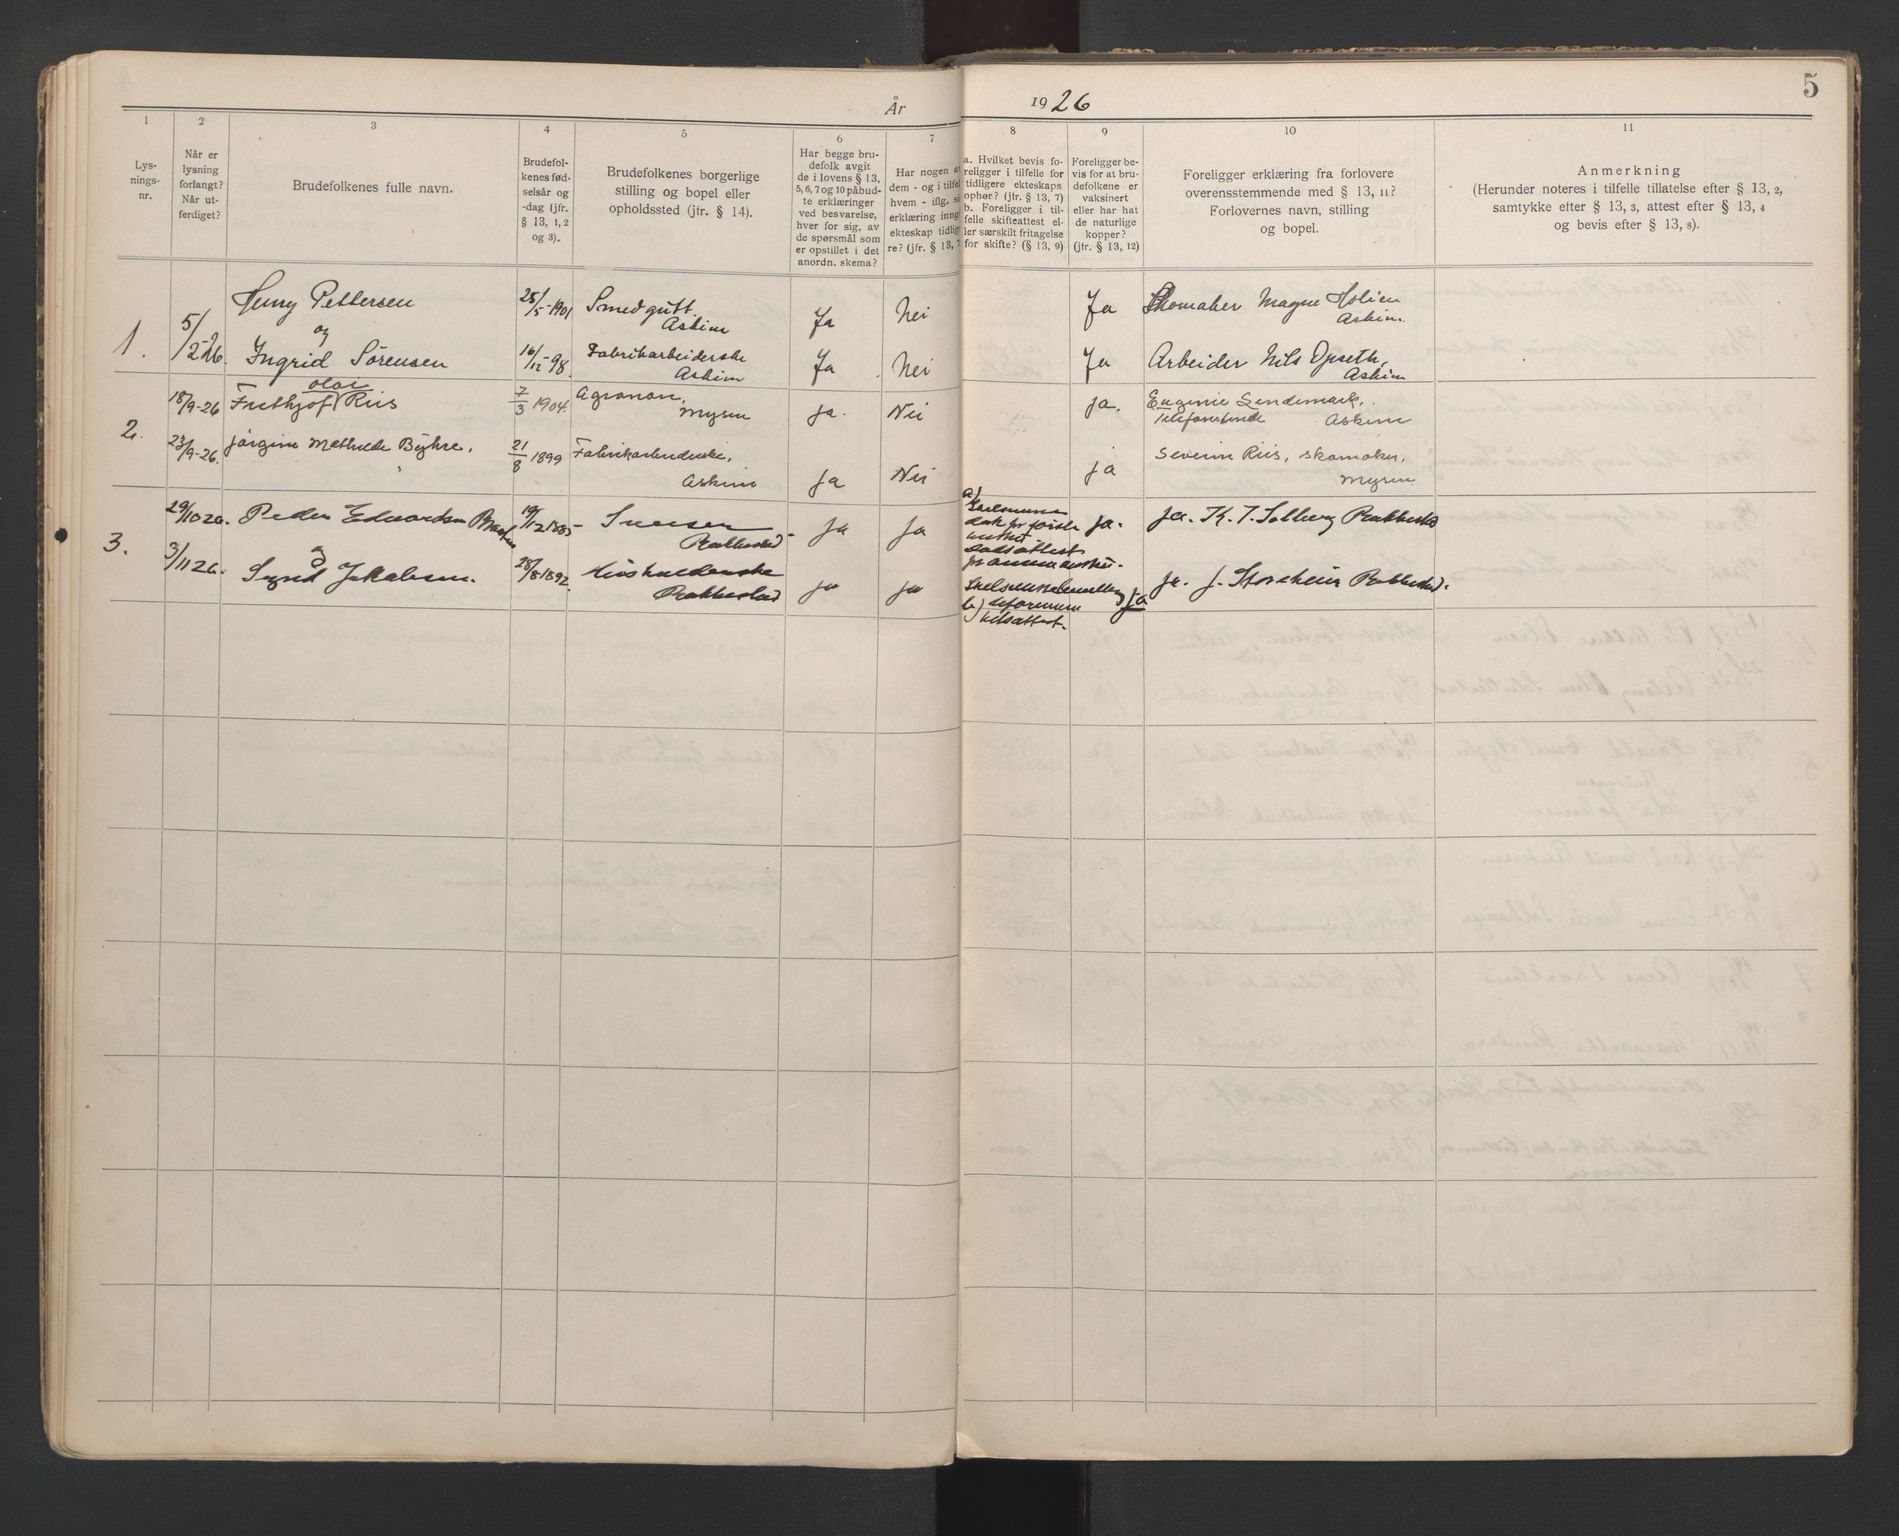 5
År 1926
1 2 3 4 5 6 7 8 9 10 11
Lys-
nings-
nr.
Når er
lysning
forlangt?
Når ut-
ferdiget?
Brudefolkenes fulle navn.
Brudefol-
kenes fød-
selsår og
-dag (jfr.
§ 13, 1, 2
og 3).
Brudefolkenes borgerlige
stilling og bopel eller
opholdssted (jfr. § 14).
Har begge bru-
defolk avgit
de i lovens § 13,
5, 6, 7 og 10 påbud-
te erklæringer
ved besvarelse,
hver for sig, av
de spørsmål som
er opstillet i det
anordn. skema?
Har nogen a
dem - og i tilfel
hvem - iflg. s
erklæring inng
ekteskap tidlig
re? (jfr. § 13, 7
a. Hvilket bevis fo-
religger i tilfelle for
tidligere ekteskaps
ophør? (jfr. § 13, 7)
b. Foreligger i til-
felle skifteattest el-
ler særskilt fritagelse
for skifte? (§ 13, 9)
Foreligger be-
vis for at bru-
defolkene er
vaksinert
eller har hat
de naturlige
kopper?
(jfr. § 13, 12)
Foreligger erklæring fra forlovere
overensstemmende med § 13, 11?
Forlovernes navn, stilling
og bopel.
Anmerkning
(Herunder noteres i tilfelle tillatelse efter § 13, 2,
samtykke efter § 13, 3, attest efter § 13, 4
og bevis efter § 13, 8).
1. 5/2-26. Henry Pettersen 25/5-1901 Smedgutt. Ja Nei Ja Skomaker Magne Holien
Askim Askim.
og
Ingrid Sørensen 16/12-98. Fabrikarbeiderske Ja Nei Ja Arbeider Nils Opseth,
Askim Askim
2. 18/9-26 Frithjof Olai Riis 7/3 1904. Agronom, Ja. Nei ja. Eugenie Sendemark,
Mysen Askim
23/9-26. Jørgine Mathilde Byhre, 21/8 1899 Fabrikarbeiderske, Ja Nei ja Severin Riis, skomaker,
Askim Mysen
3. 29/10 26. Peder Edvardsen 19/12 1885 ja ja a) ja. ja. K. T. Solberg Rakkestad
Rakkestad
og
dødsattest
3/11 26. Sigrid Jakobsen. 28/8-1892. Husholderske ja ja ja ja. J. Storeheier Rakkestad.
Rakkestad b)